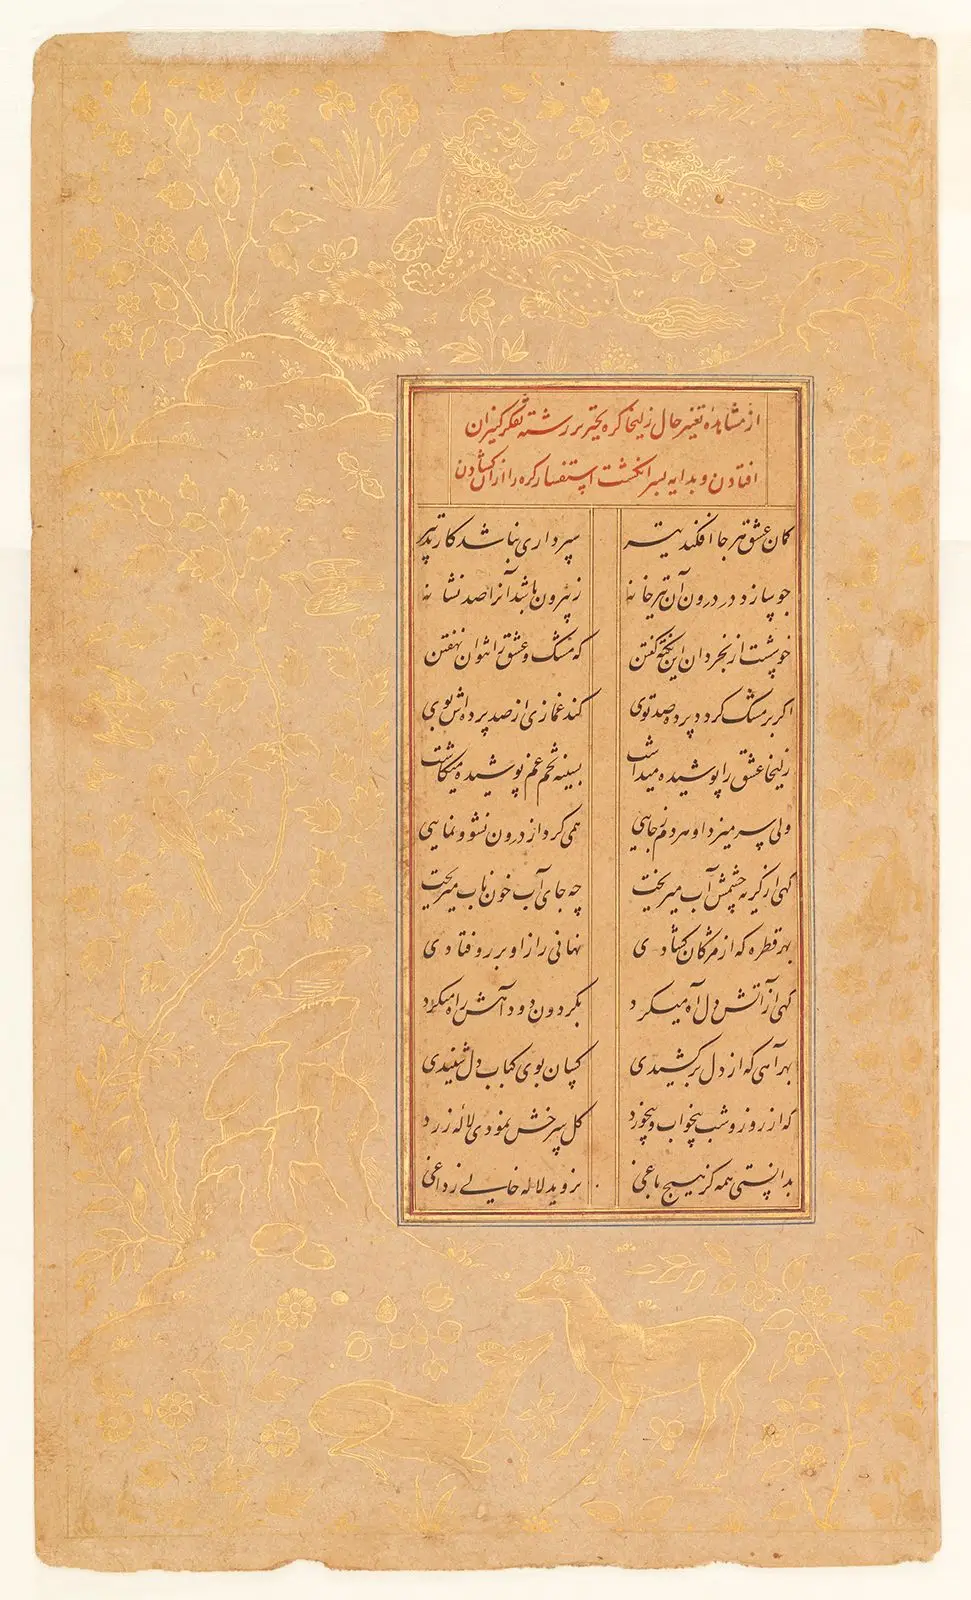 از مشاهدهٔ تغیر حال زلیخا گره تحیر بر رشته تفکر کنیزان
افتادن و بدایه بسر انگشت استفسار گره را از آن گشادن
کمان عشق هر جا افکند تیر سپرداری نباشد کار تدبیر
چو سازد در درون آن تیر خانه ز بیرون باشد آنرا صد نشانه
خوشست از بخردان این نکته گفتن که مشک و عشق را نتوان نهفتن
اگر بر مشک گردد پرده صد توی کند غمازی از صد پرده اش بوی
زلیخا عشق را پوشیده میداشت بسینه تخم غم پوشیده میکاشت
ولی سر میزد او هر دم ز جایی همی کرد از درون نشو و نمایی
گهی از گریه چشمش آب میریخت چه جای آب خون ناب میریخت
بهر قطره که از مژگان گشادی نهانی راز او بر رو فتادی
گهی از آتش دل آه میکرد بگردون دود آهش راه میکرد
بهر آهی که از دل برکشیدی کسان بوی کباب دل شنیدی
که از روز و شب بیخواب و بیخورد گل سرخش نمودی لاله زرد
بدانستی همه کز هیچ باغی نروید لاله خالی ز داغی